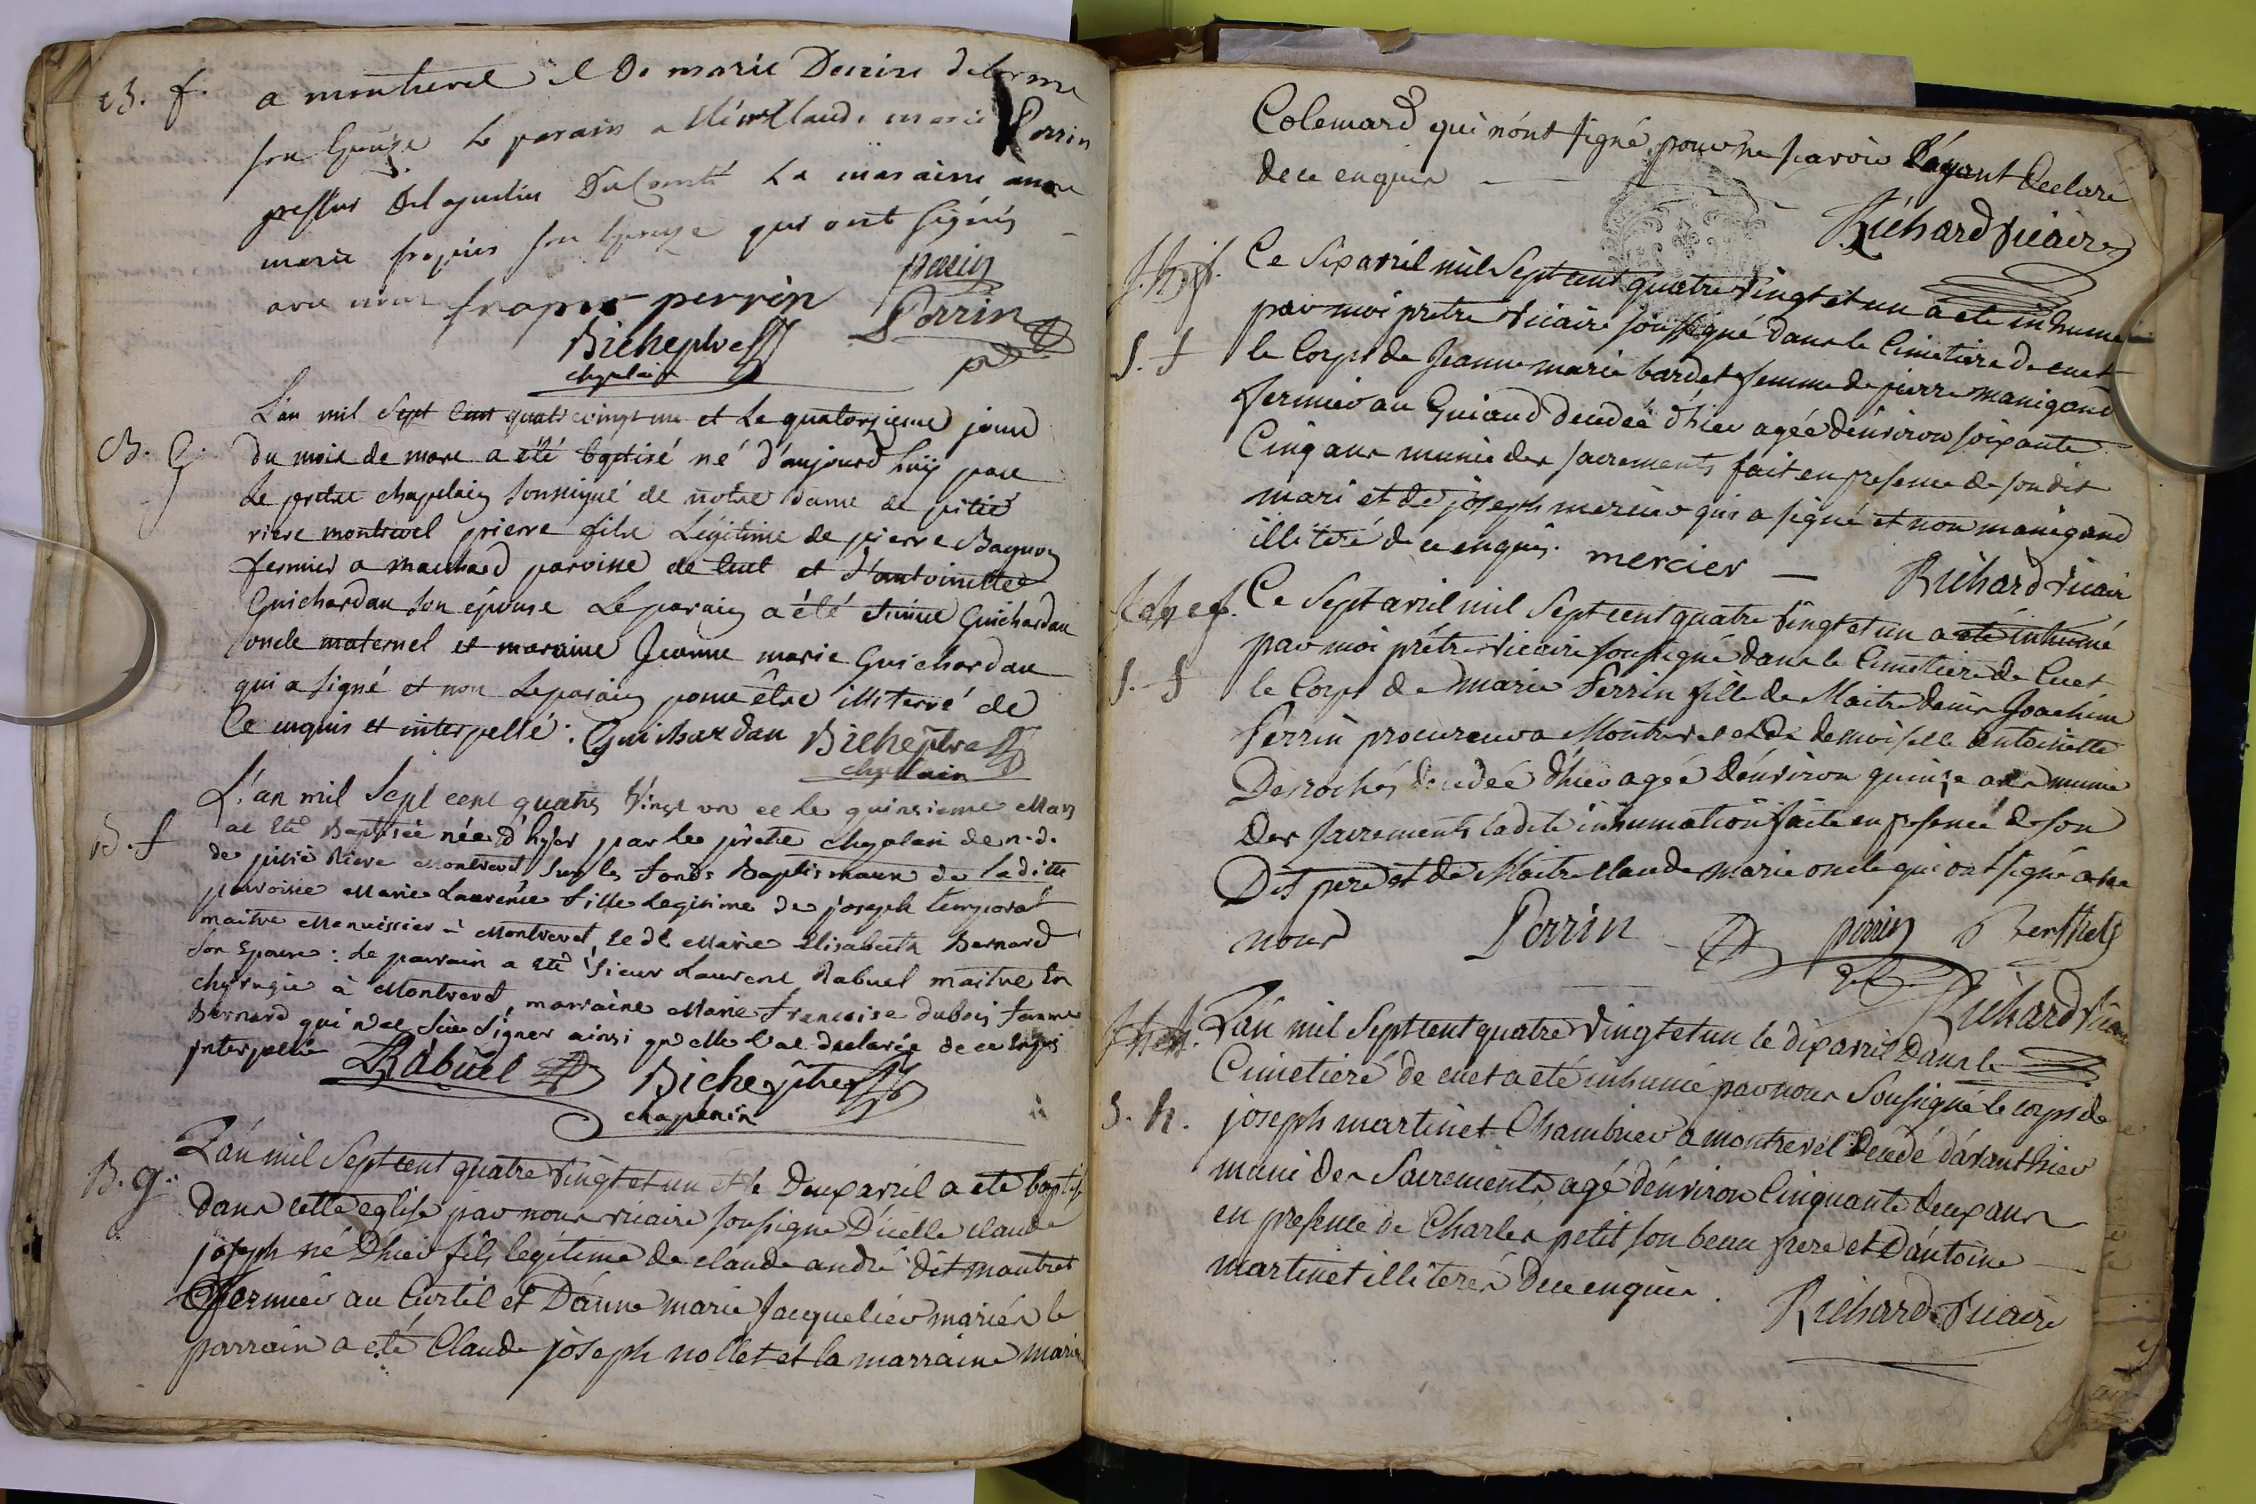 B. f. a montrevel et De marie Denise delorme
son Epouse le parain a été mr Claude marie Perrin
La maraine anne
marie frapier son Epouse qui ont signés
avec nous frapier perrin perrin
Perrin
Biche ptre
chapelain
L'an mil sept cent quatrevingt un et le quatorzieme jour
B. G. du mois de mars a été baptisé né d'aujourd'huÿ par
le pretre chapelain soussigné de notre dame de pitié
riere montrevel pierre fils légitime de pierre Baguon
fermier a manchard paroisse de Cuet et d'antoinette
Guichardan son épouse le parain a été Guichardan
oncle maternel et maraine Jeanne marie Guichardan
qui a signé et non le parain pour être illiterré de
ce enquis et interpellé : Guichardan Biche ptre
chapelain
L'an mil sept cent quatre vingt un et le quinsieme Mars
B. f at eté Baptisée née d'hyer par le prêtre chapelain de n.d.
de pitié Riere Montrevel sur les fonds Baptismaux de laditte
paroisse Marie Laurence fille legitime de joseph temporal
maitre Menuissier à Montrevel, et de Marie Elisabeth Bernard
son Epouse : le parrain a eté sieur Laurent Rabuel maitre en
chyrugie à Montrevel, marraine Marie francoise dubois femme
Bernard qui n'at sue signer ainsi qu'elle l'at declarée de ce enquis
interpellée
LRabuel Biche ptre
chapelain
L'an mil sept cent quatre vingt et un et le deux avril a eté baptisé
B. g. dans cette eglise par nous vicaire soussigne D'icelle claude
joseph né d'hier fils legitime de claude andré dit mautret
fermier au Curtil et D'anne marie Jacquelier mariés le
parrain a eté Claude joseph nollet et la marraine marie
Colemard qui n'ont signé pour ne savoir L'ayant declaré
de ce enquis
Richard vicaire
Ce six avril mil sept cent quatre vingt et un a eté inhumé
par moi pretre vicaire soussigné dans le Cimetiere de cuet
S. f le Corps de Jeanne marie bardet femme de pierre manigand
fermier au Guiaud decedée d'hier agée d'environ soixante
Cinq ans munie des sacrements fait en presence de son dit
mari et de joseph mercier qui a signé et non manigand
illiteré de ce enquis. mercier — Richard vicair
Ce sept avril mil sept cent quatre vingt et un a eté inhumé
par moi prêtre vicaire soussigné dans le Cimetiere de Cuet
S. f le Corps de marie Perrin fille de Maitre denis Joachim
Perrin procureur a Montrevel et de demoiselle antoinette
Desroches decedée d'hier agée d'environ quinze ans munie
Des sacrements ladite inhumation faite en presence de son
Dit pere et de Maitre claude marie oncle qui ont signé avec
nous Perrin perrin
Richard vicaire
L'an mil sept cent quatre vingt et un le dix avril dans le
Cimetiere de cuet a eté inhumé par nous soussigné le corps de
S. h. joseph martinet Chambrier a montrevel decedé d'avant hier
muni des Sacrements agé d'environ Cinquante deux ans
en presence de Charles petit son beau frere et D'antoine
martinet illiterés de ce enquis.
Richard vicaire